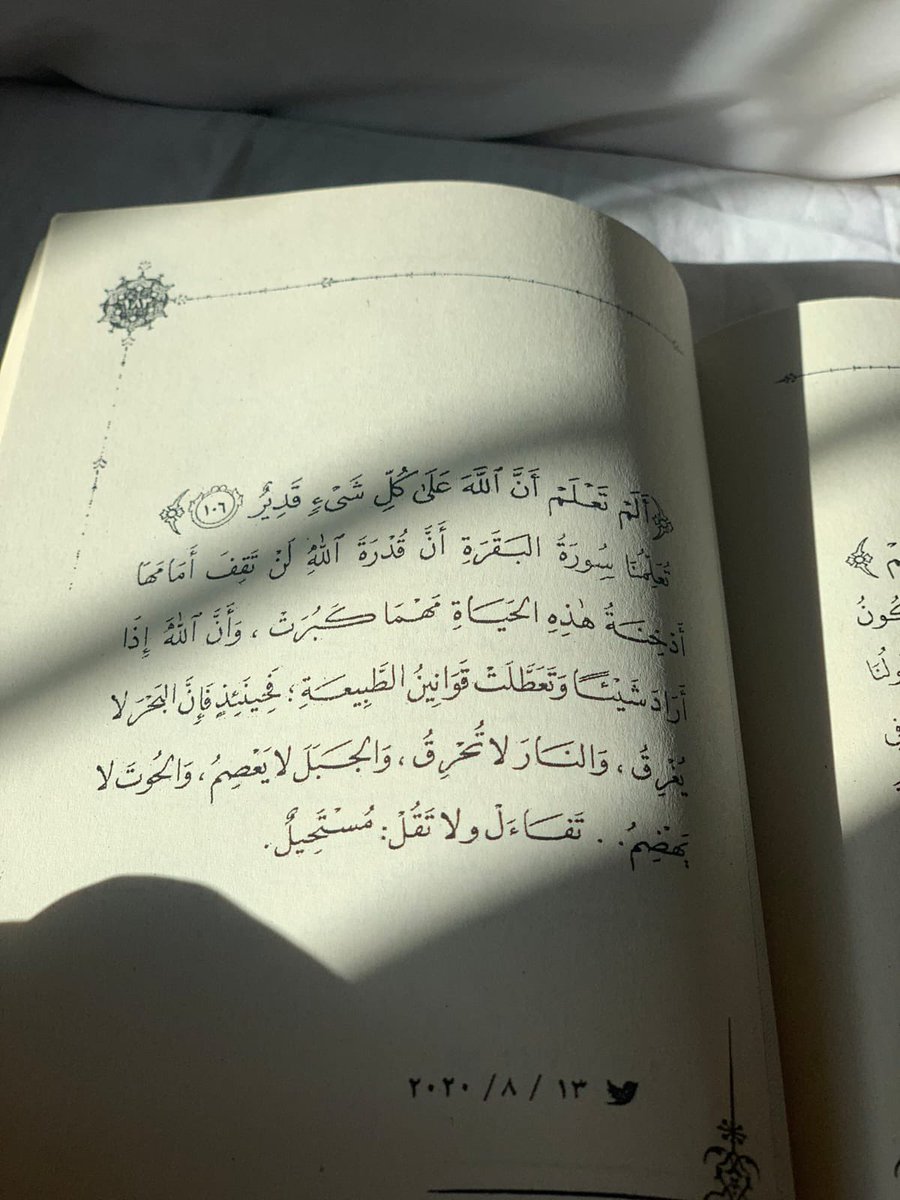 ﴿أَلَمْ تَعْلَمْ أَنَّ ٱللَّهَ عَلَىٰ كُلِّ شَىْءٍ قَدِيرٌ ١٠٦﴾
تُعَلِّمُنَا سُورَةُ البَقَرَةِ أَنَّ قُدْرَةَ ٱللهِ لَنْ تَقِفَ أَمَامَهَا
أَدْخِنَةُ هٰذِهِ الحَيَاةِ مَهْمَا كَبُرَتْ، وَأَنَّ ٱللهَ إِذَا
أَرَادَ شَيْئًا وَتَعَطَّلَتْ قَوَانِينُ الطَّبِيعَةِ؛ فَحِينَئِذٍ فَإِنَّ البَحْرَ لا
يُغْرِقُ، وَالنَارَ لا تُحْرِقُ، وَالجَبَلَ لا يَعْصِمُ، وَالحُوتَ لا
يَهْضِمُ.. تَفَاءَلْ ولا تَقُلْ: مُسْتَحِيلٌ.
١٣ / ٨ / ٢٠٢٠
﴾